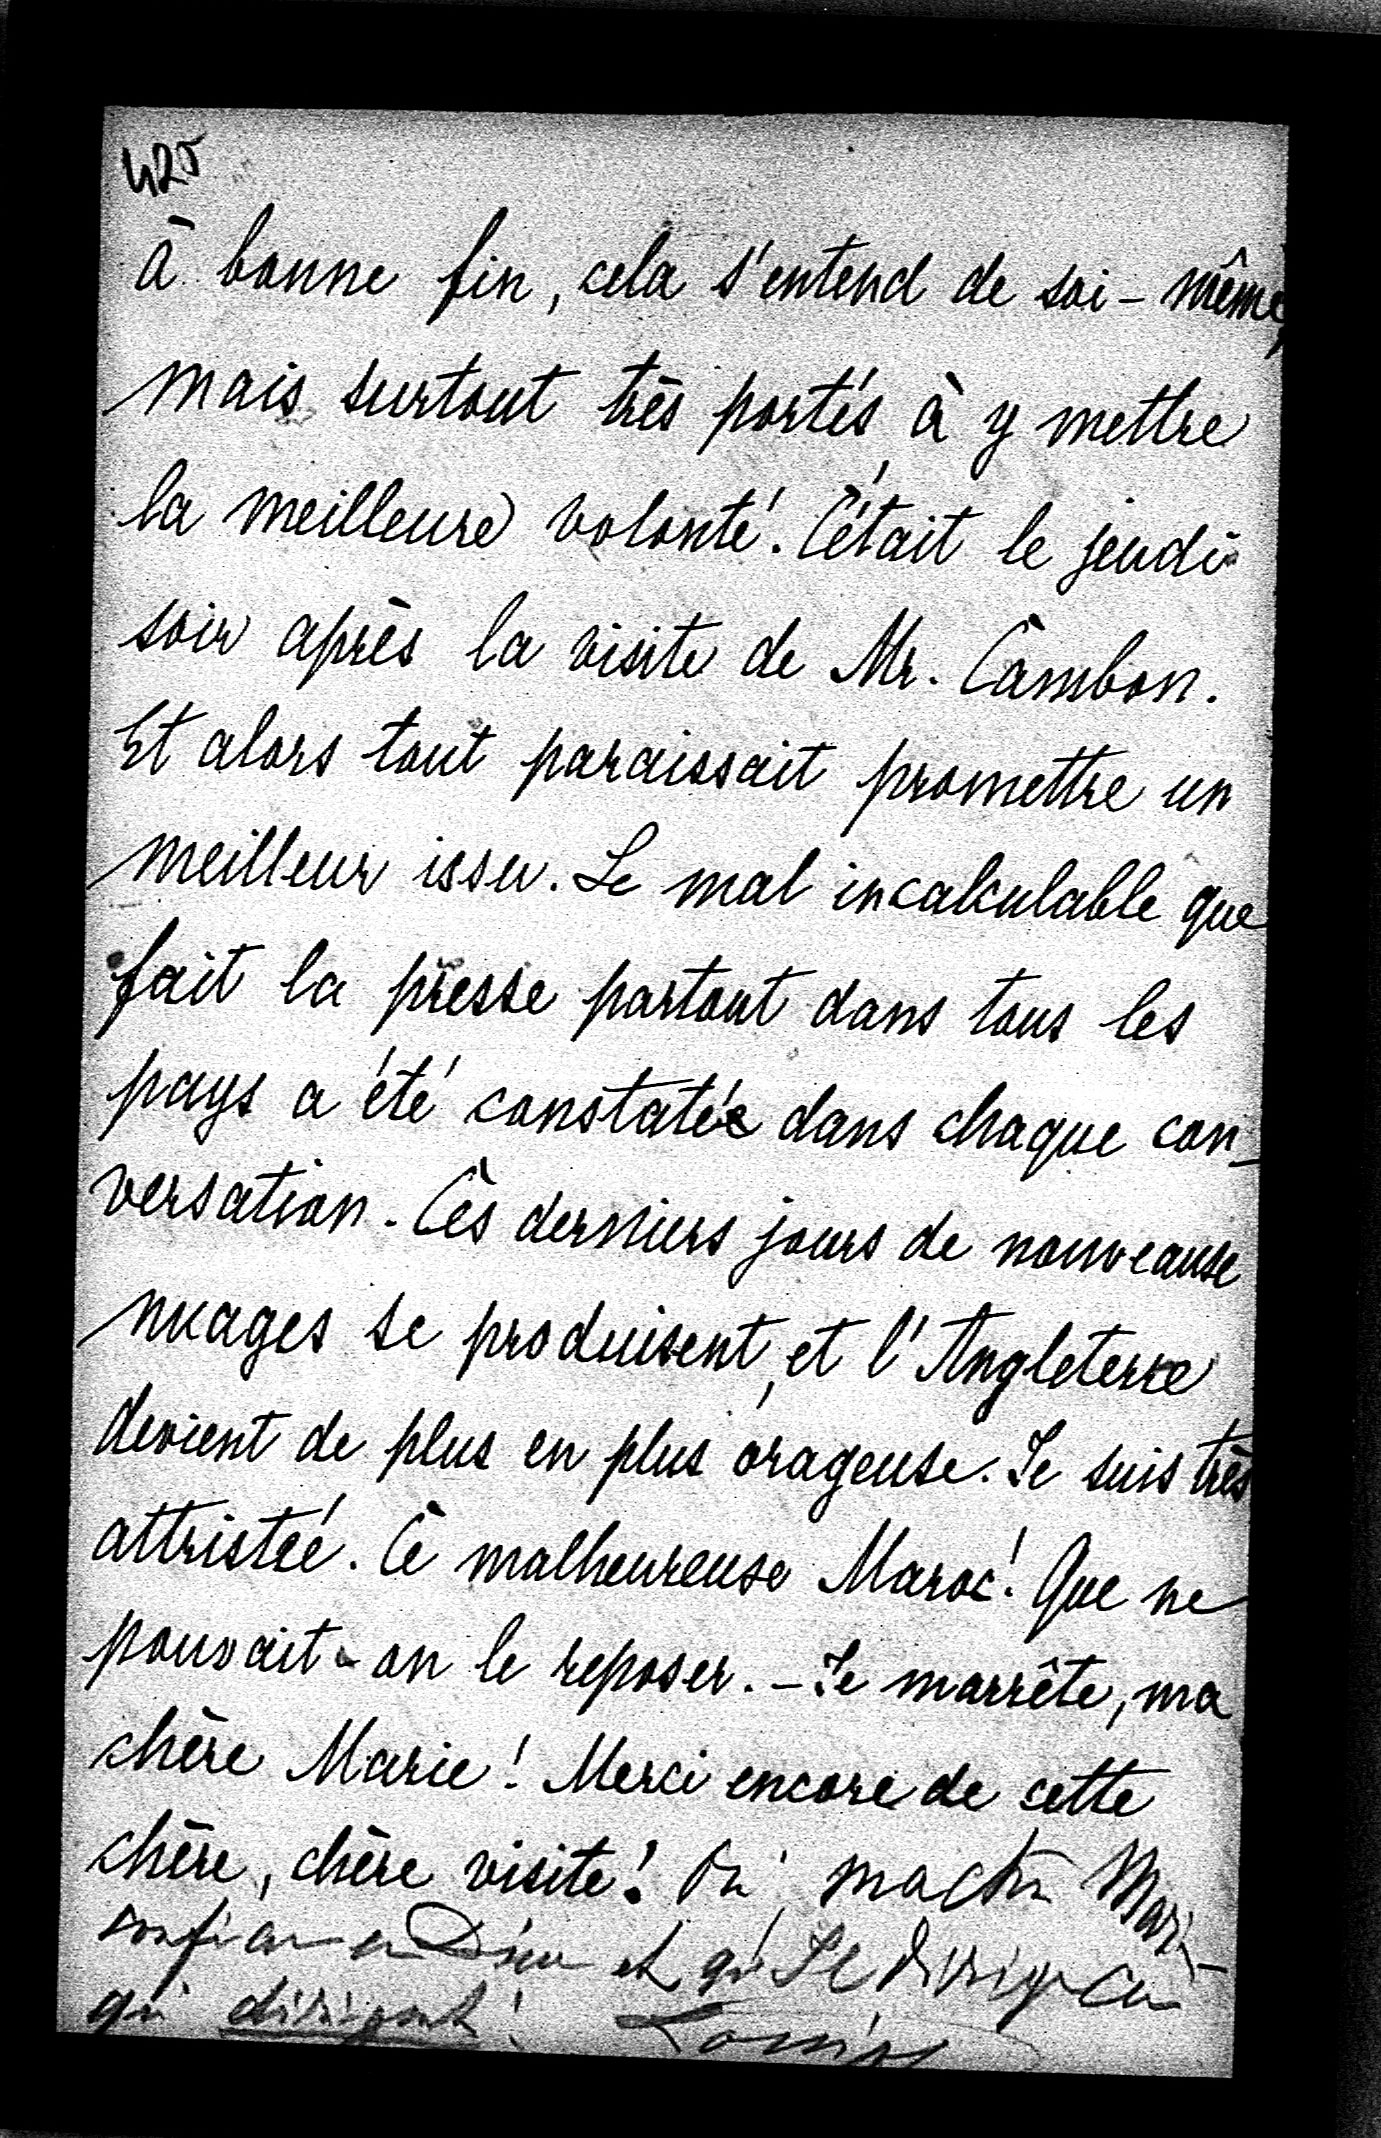 425
à bonne fin, cela s'entend de soi-même,
mais surtout très portés à y mettre
la meilleure volonté. C'était le jeudi
soir après la visite de Mr. Cambon.
Et alors tout paraissait promettre un
meilleur issu. Le mal incalculable que
fait la presse partout dans tous les
pays a été constatée dans chaque con-
versation. Ces derniers jours de nouveause
nuages se produisent, et l'Angleterre
devient de plus en plus orageuse. Je suis très
attristée. Ce malheureuse Maroc! Que ne
pouvait-on le reposer. – Je marrête, ma
chère Marie! Merci encore de cette
chère, chère visite! ma Marie
en Dieu et qu'Il dirige
qui dirigent! Louise